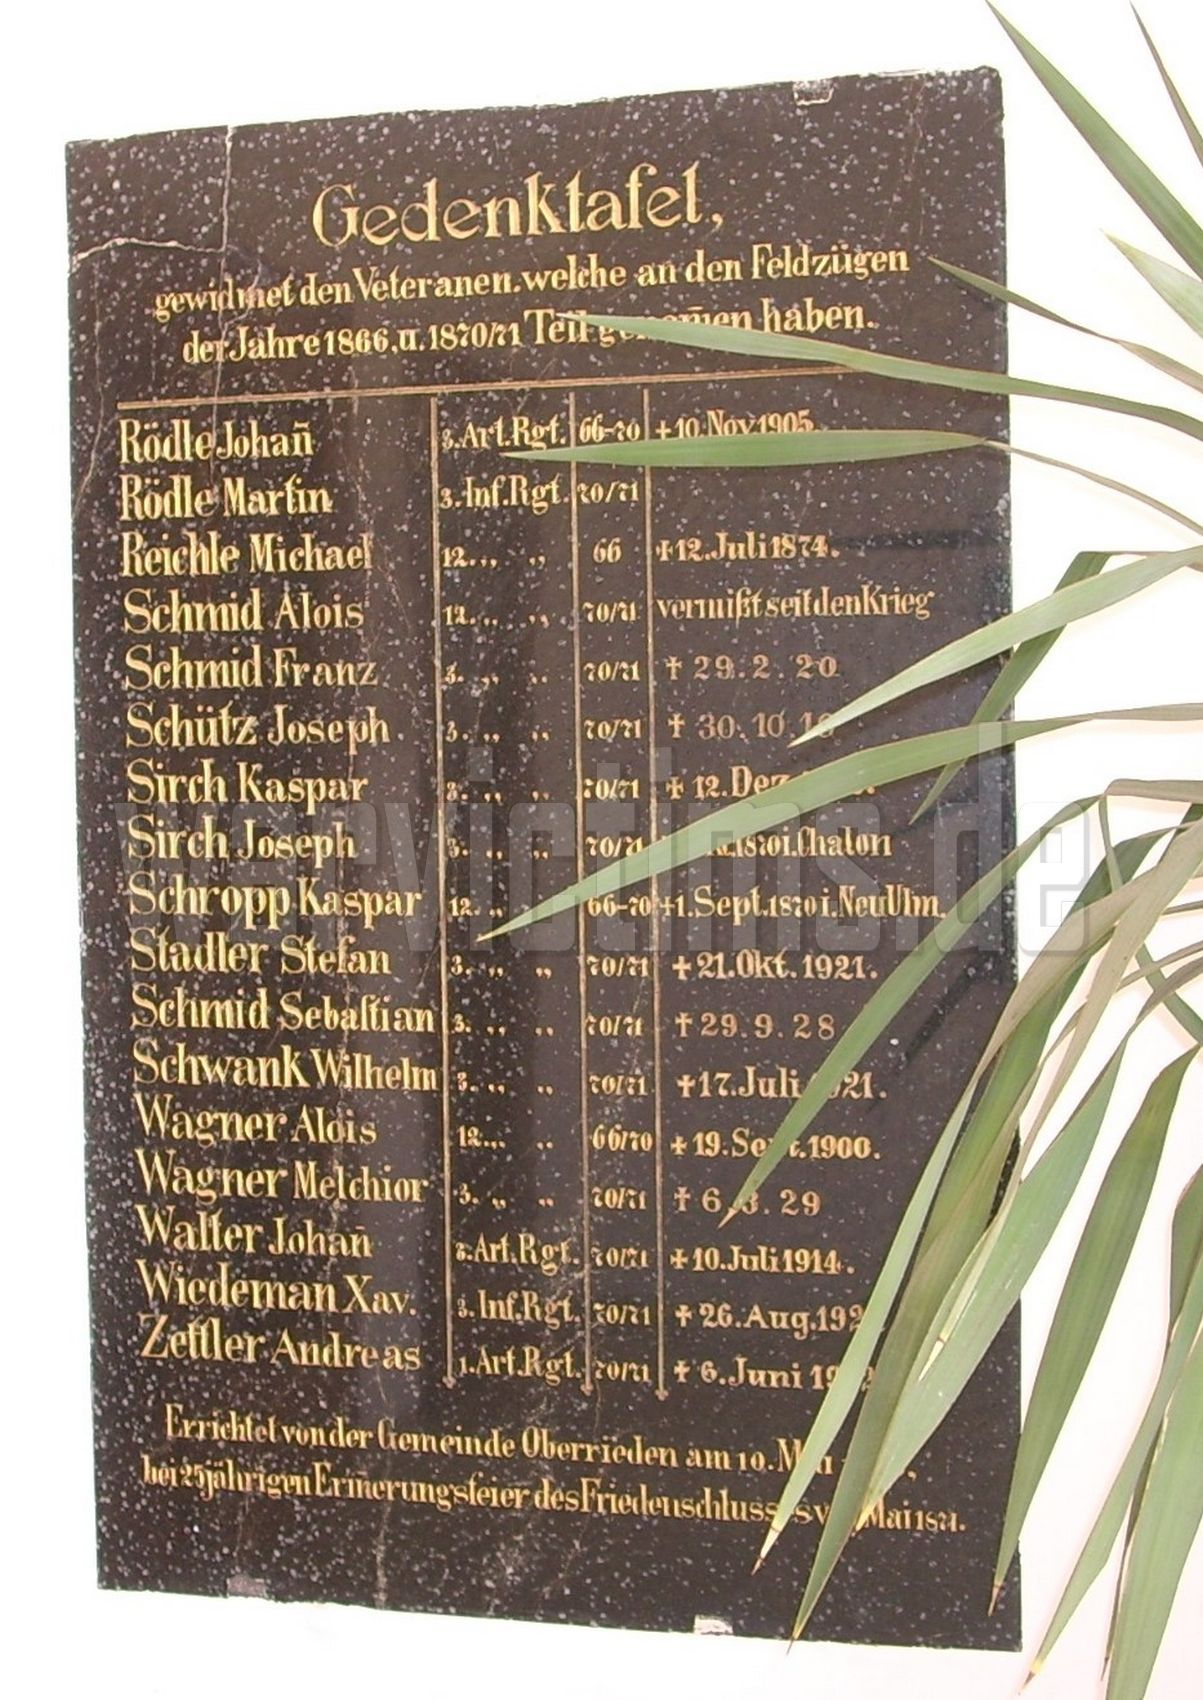 Gedenktafel,
gewidmet den Veteranen. welche an den Feldzügen
der Jahre 1866, u. 1870/71 Teil haben.
Rödle Johan̄ 3. Art. Rgt. 66-70 + 10. Nov 1905
Rödle Martin 3. Inf. Rgt. 70/71
Reichle Michael 12. „ „ 66 + 12. Juli 1874.
Schmid Alois 12. „ „ 70/71 vermißt seit den Krieg
Schmid Franz 3. „ „ 70/71 † 29. 2. 20
Schütz Joseph. 3. „ „ 70/71 † 30. 10.
Sirch Kaspar 3. „ „ 70/71 + 12.
Sirch Joseph 3. „ „ 70/71 1870 i. Chalon
Schropp Kaspar 12. „ „ 66-70 +1. Sept. 1870 i. Neu Ulm.
Stadler Stefan 3. „ „ 70/71 + 21. Okt. 1921.
Schmid Sebastian 3. „ „ 70/71 † 29. 9. 28
Schwank Wilhelm 3. „ „ 70/71 + 17. Juli
Wagner Alois 12. „ „ 66/70 + 19. Sept. 1900.
Wagner Melchior 3. „ „ 70/71 † 6. 29
Walter Johan̄ 3. Art. Rgt. 70/71 + 10. Juli 1914.
Wiedeman Xav. 3. Inf. Rgt. 70/71 + 26. Aug.
Zettler Andreas 1. Art. Rgt. 70/71 + 6. Juni
Errichtet von der Gemeinde Oberrieden am 10. Mai
bei 25jährigen Erin̄erungsfeier des Friedenschlusses v. Mai 1871.
warvictims.de